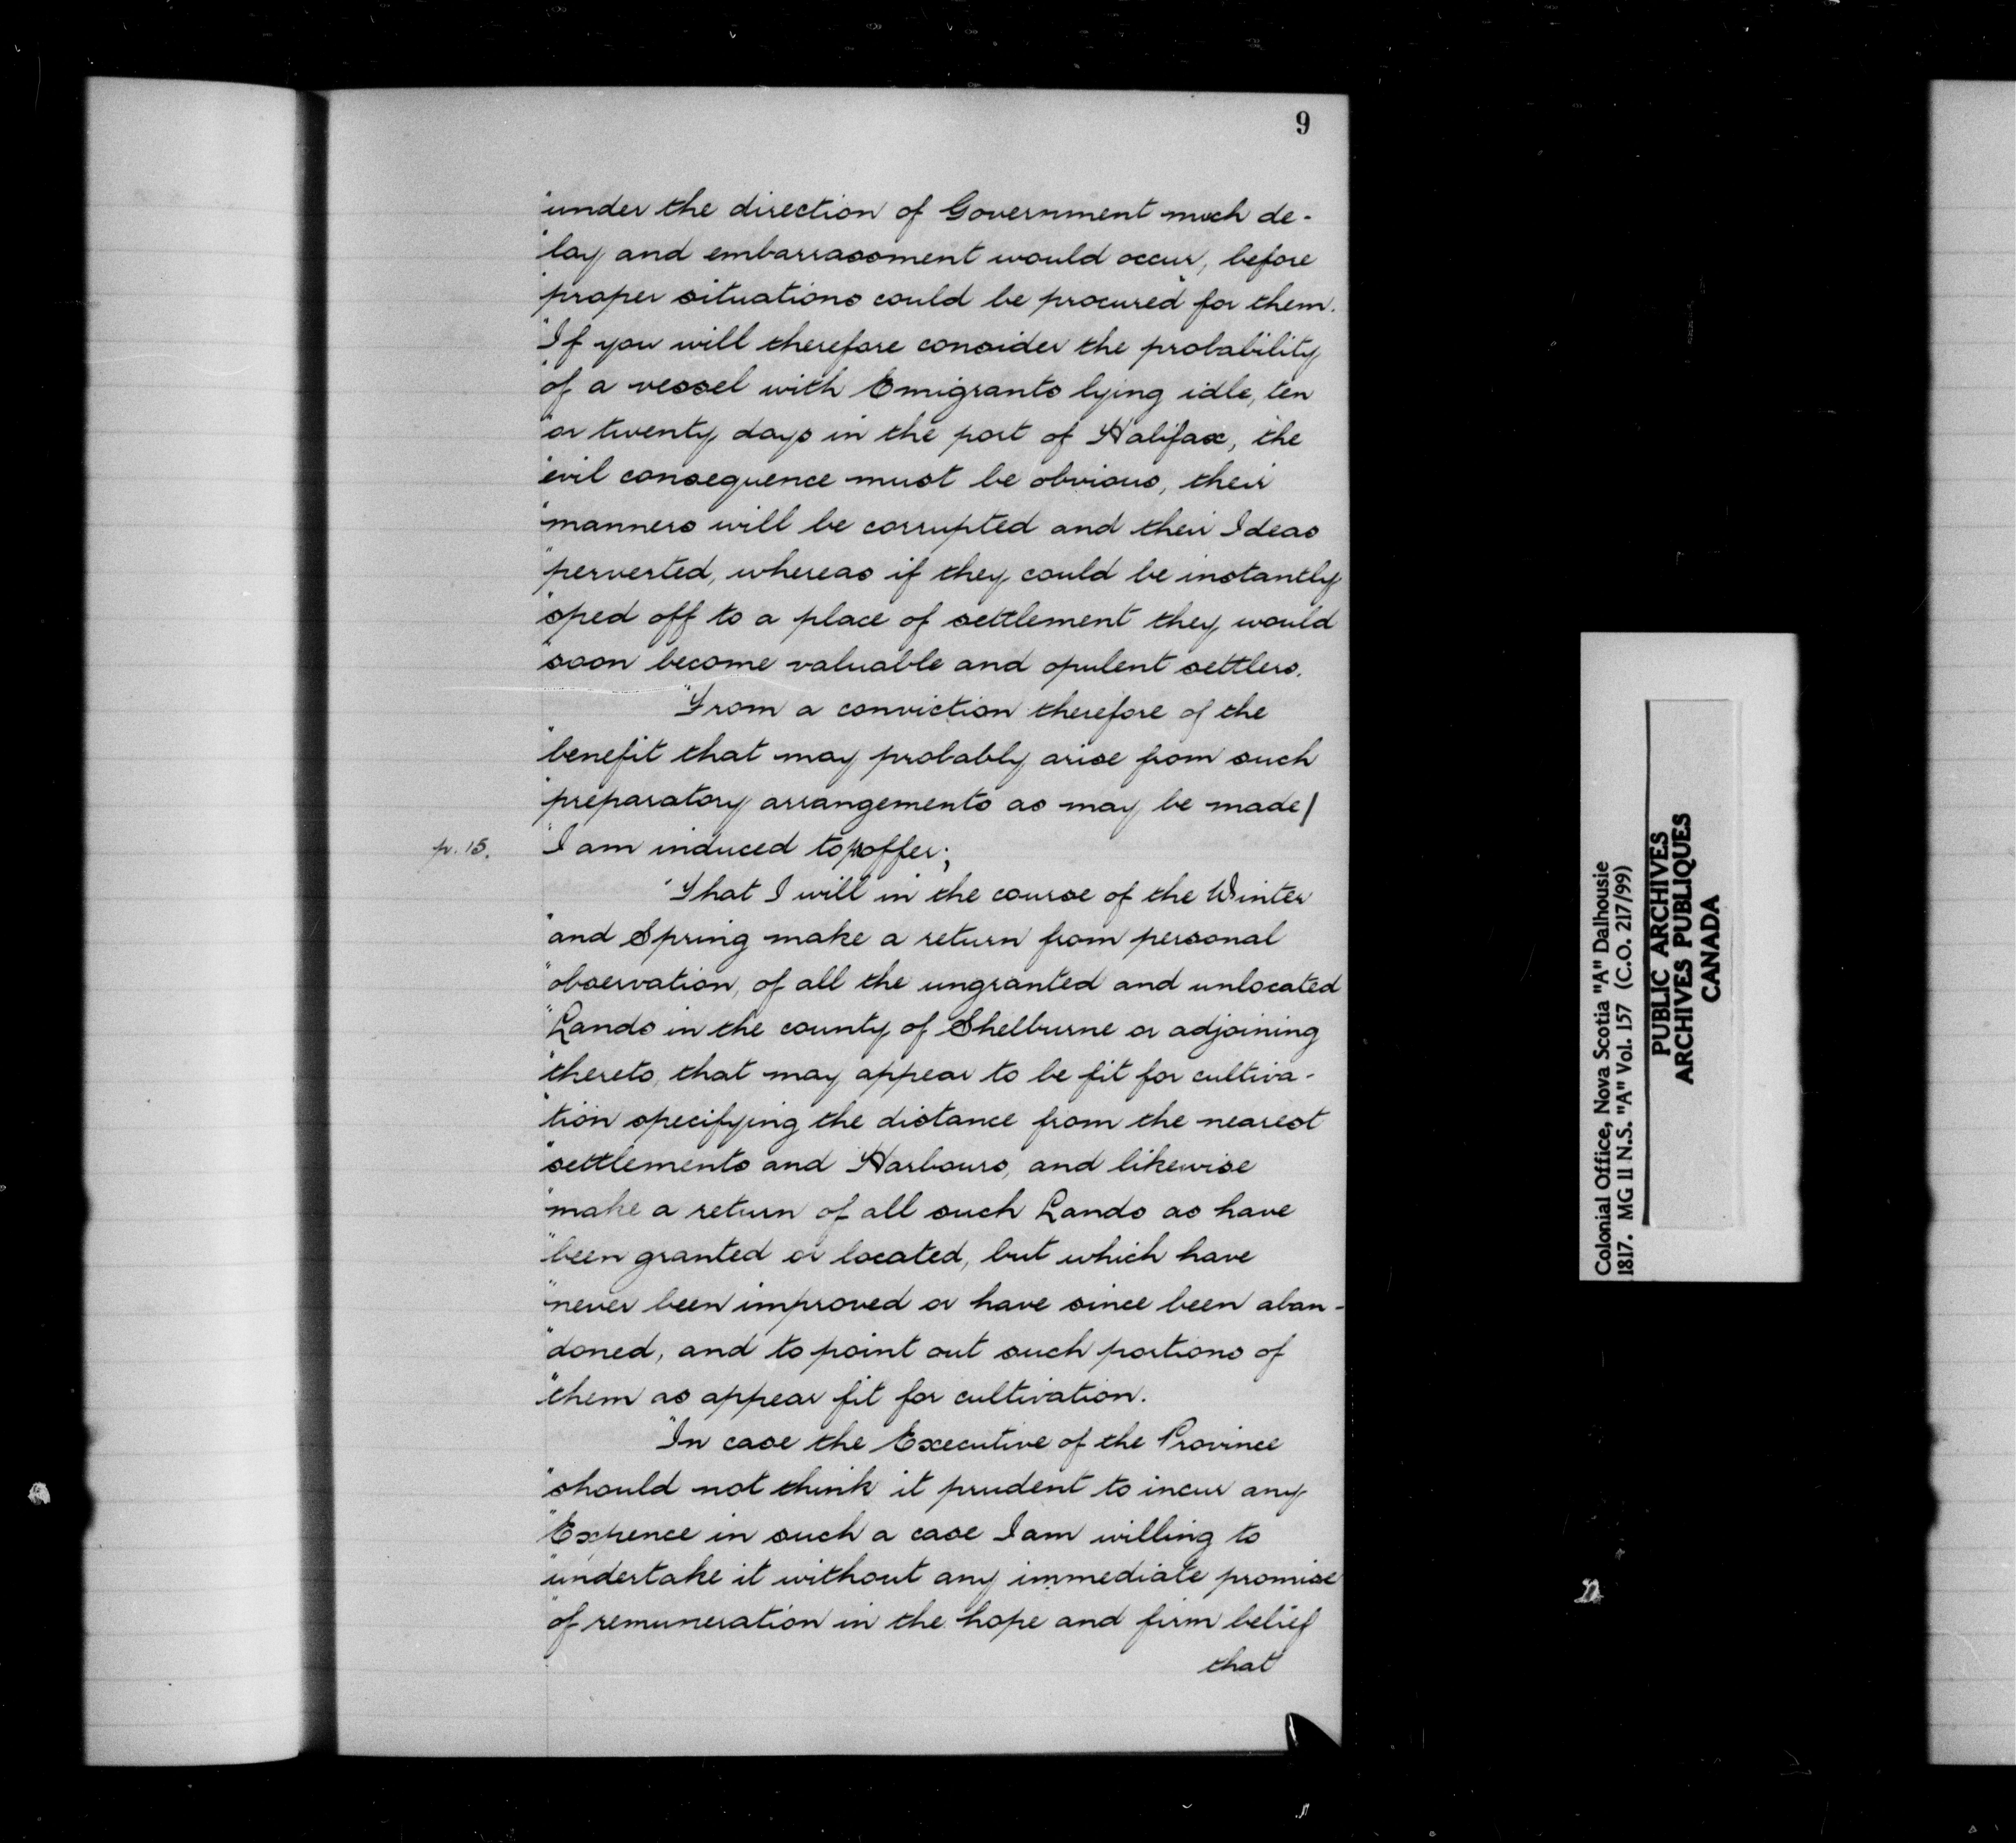 9
"under the direction of Government much de-
"lay and embarrassment would occur, before
"proper situations could be procured for them.
"If you will therefore consider the probability
"of a vessel with Emigrants lying idle, ten
"or twenty days in the port of Halifax, the
"evil consequence must be obvious, their
"manners will be corrupted and their Ideas
"perverted, whereas if they could be instantly
"sped off to a place of settlement they would
"soon become valuable and opulent settlers.
"From a conviction therefore of the
"benefit that may probably arise from such
"preparatory arrangements as may be made/
p. 15.
"I am induced to proffer;
"That I will in the course of the Winter
"and Spring make a return from personal
"observation, of all the ungranted and unlocated
"Lands in the county of Shelburne or adjoining
"thereto, that may appear to be fit for cultiva-
"tion specifying the distance from the nearest
"settlements and Harbours, and likewise
"make a return of all such Lands as have
"been granted or located, but which have
"never been improved or have since been aban-
"doned, and to point out such portions of
"them as appear fit for cultivation.
"In case the Executive of the Province
"should not think it prudent to incur any
"Expence in such a case I am willing to
"undertake it without any immediate promise
"of remuneration in the hope and firm belief
that
Colonial Office, Nova Scotia "A" Dalhousie
1817. MG 11 N.S. "A" Vol. 157 (C.O. 217/99)
PUBLIC ARCHIVES
ARCHIVES PUBLIQUES
CANADA